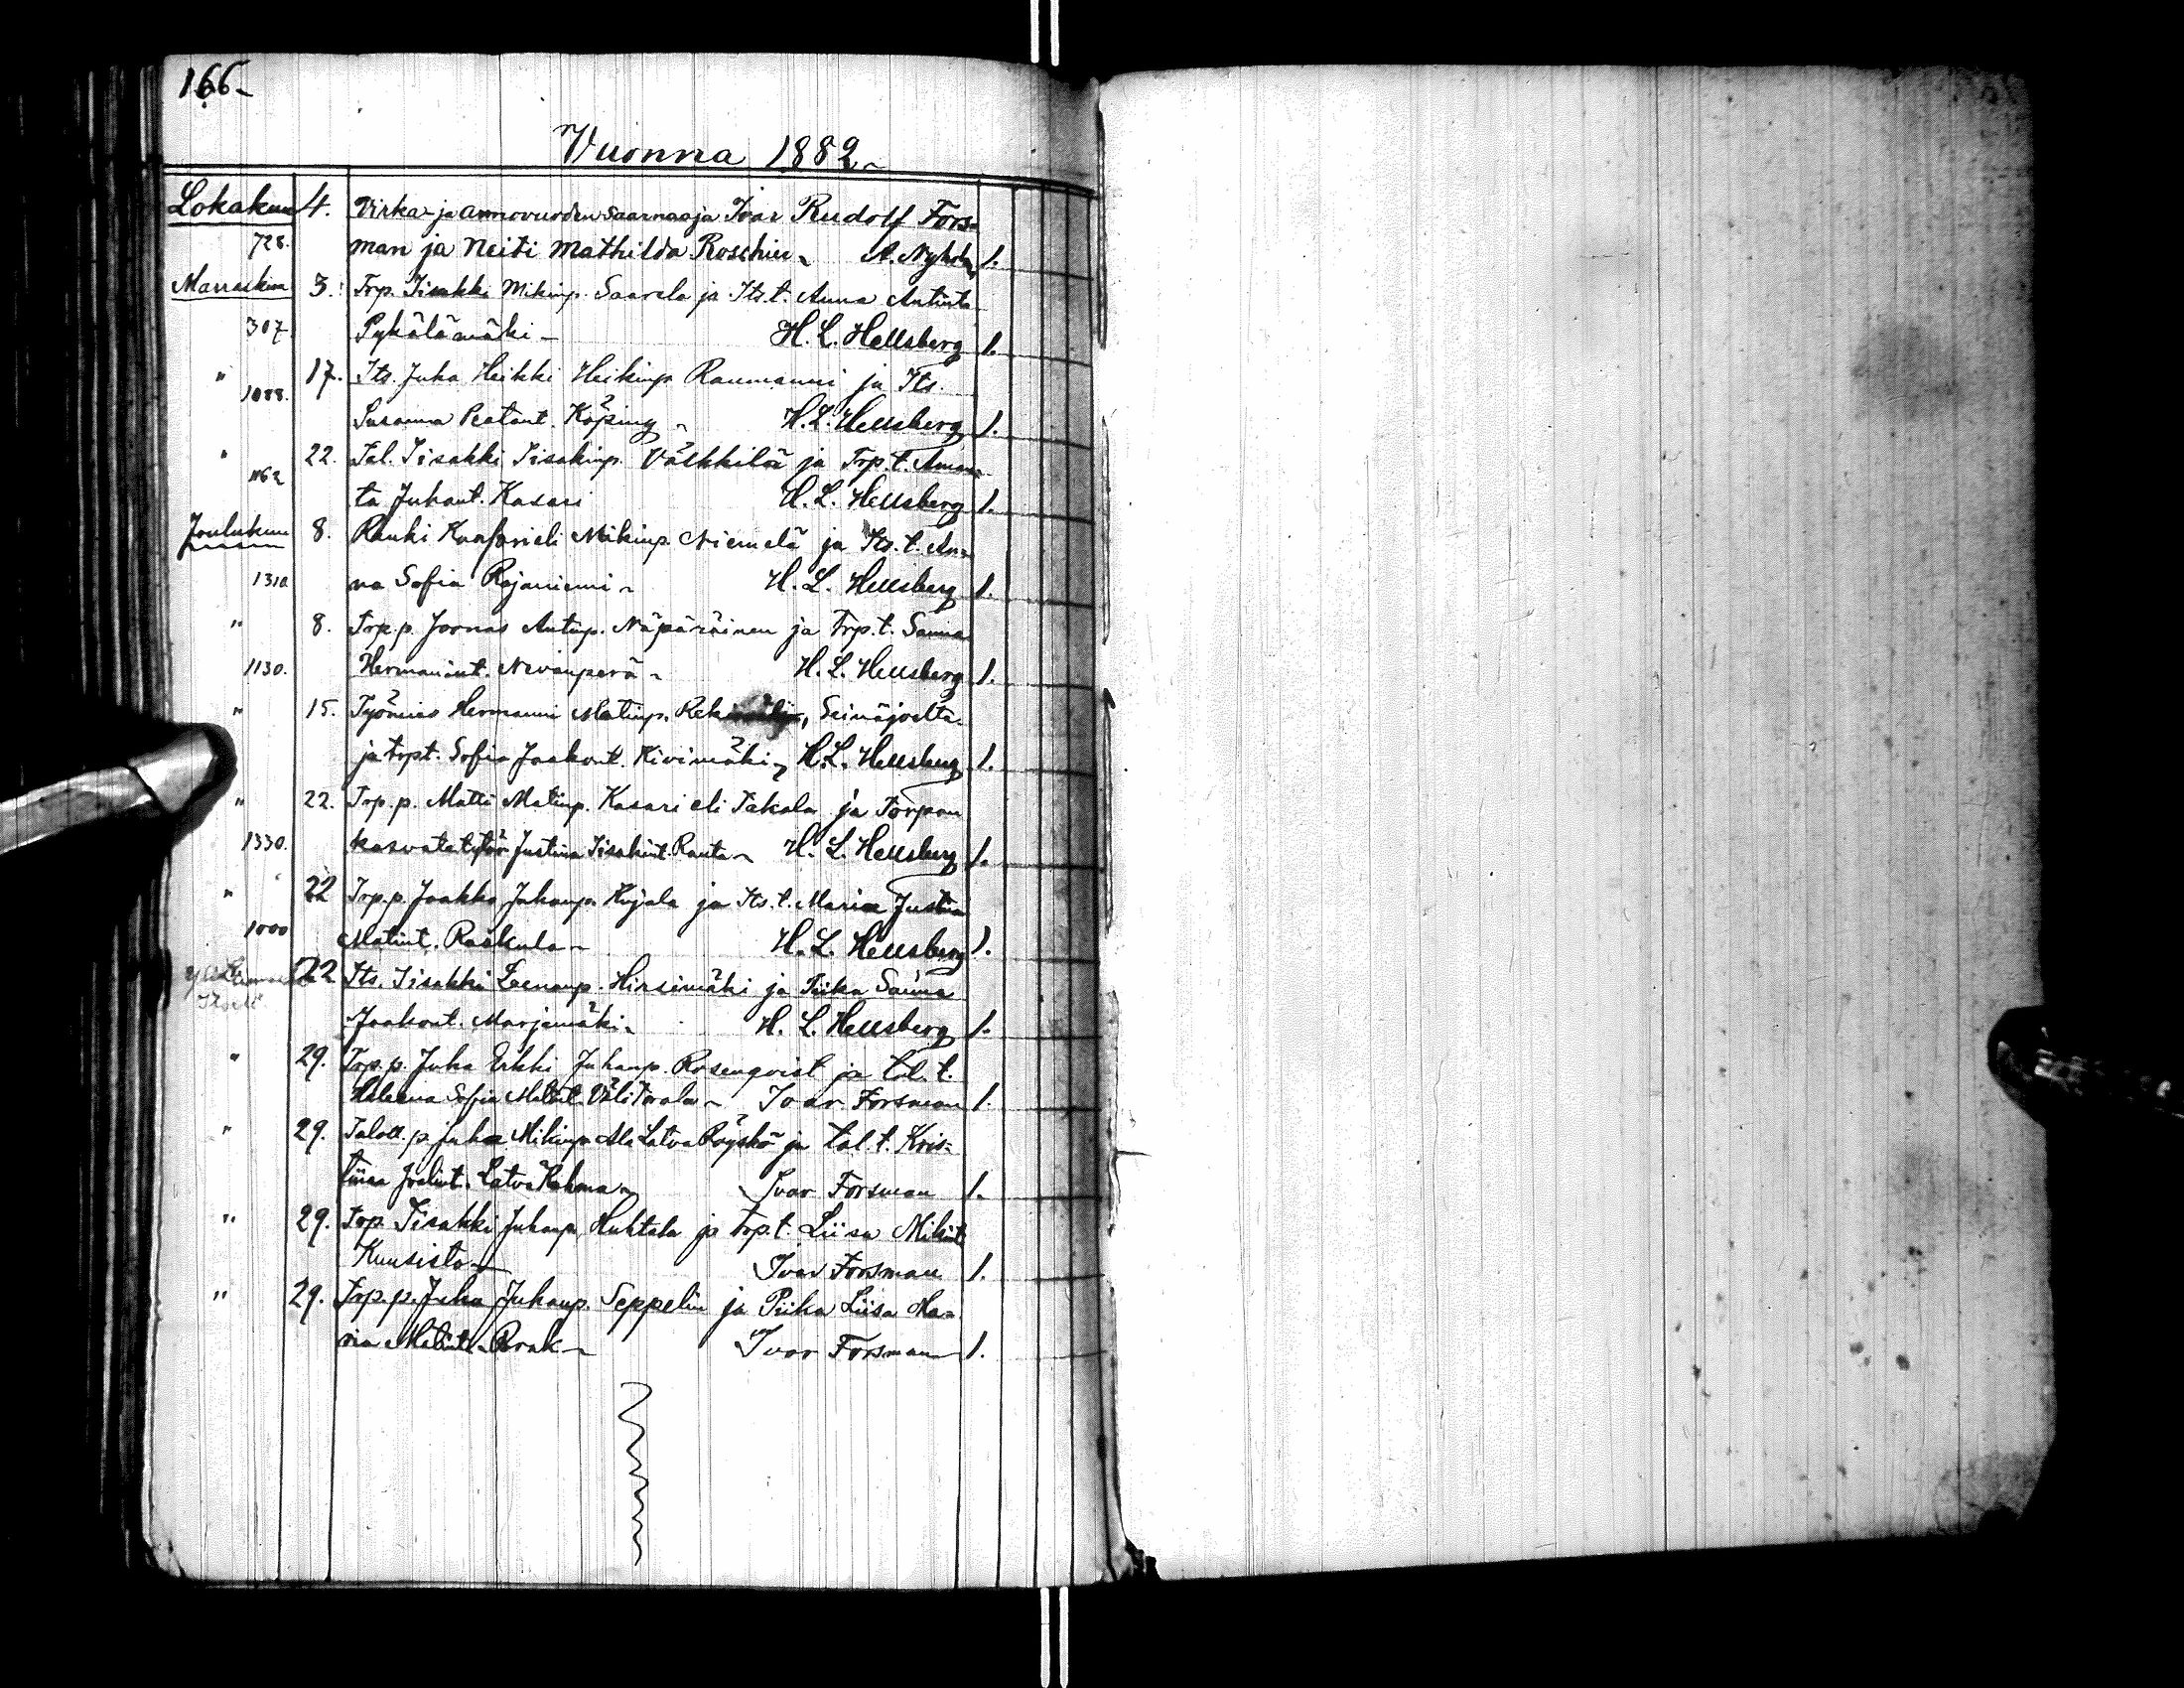 166
Vuonna 1882
Lokakuu 4. Virka- ja armovuoden saarnaaja Ivar Rudolf Fors-
728. man ja Neiti Mathilda Roschier A. Nyholm 1.
Marraskuu 3. Trp. Iisakki Mikinp. Saarela ja Its. t. Anna Antint.
307 Pykälämäki H. L. Hellsberg 1.
" 17. Its. Juha Heikki Heikinp. Raumanni ja Its.
1088. Susanna Köping H. L. Hellsberg 1.
" 22. Tal. Iisakki Iisakinp. Välkkilä ja Trp. t. Aman-
1162 ta Juhant. Kasari H. L. Hellsberg 1.
Joulukuu 8. Renki Mikinp. Niemelä ja Its. t. An-
1310 na Sofia Rajaniemi H. L. Hellsberg 1.
" 8. Trp. p. Joonas Antinp. Näpäräinen ja Trp. t. Sanna
1130. Hermanint. Nevanperä H. L. Hellsberg 1.
" 15. Työmies Hermanni Matinp. Seinäjoelta
ja trpt. Sofia Jaakont. Kivimäki H. L. Hellsberg 1.
" 22. Trp. p. Matti Matinp. Kasari eli Takala ja Torpan
1330. kasvatatytär Justiina Iisakint. Ranta H. L. Hellsberg 1.
" 22 Trp. p. Jaakko Juhanp. Kujala ja Its. t. Maria Justina
1000 Matint. H. L. Hellsberg 1.
22 Its. Iisakki Hirsimäki ja Piika Sanna
Jaakont. Marjamäki H. L. Hellsberg 1.
" 29. Trp. p. Juha Erkki Juhanp. Rosenqvist ja tal. t.
Heleena Sofia Matint. Ivar Forsman 1.
" 29. Taloll. p. Juha Mikinp. Ala Latva Röyskö ja tal. t. Kris-
tiina Ivar Forsman 1.
" 29. Trp. Iisakki Juhanp. Huhtala ja trp. t. Liisa Mikint.
Kuusisto Ivar Forsman 1.
" 29. Trp. p. Juha Juhanp. Seppelin ja Piika Liisa Ma-
ria Matint. Ivar Forsman 1.